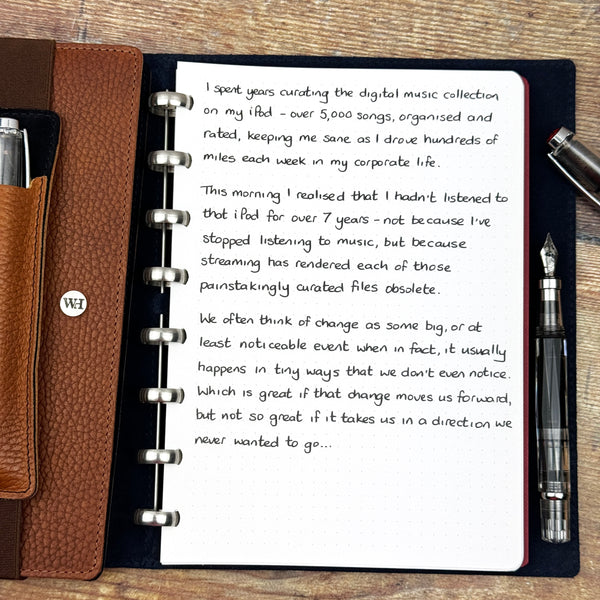 I spent years curating the digital music collection
on my iPod - over 5,000 songs, organised and
rated, keeping me sane as I drove hundreds of
miles each week in my corporate life.
This morning I realised that I hadn't listened to
that iPod for over 7 years - not because I've
stopped listening to music, but because
streaming has rendered each of those
painstakingly curated files obsolete.
We often think of change as some big, or at
least noticeable event when in fact, it usually
happens in tiny ways that we don't even notice.
Which is great if that change moves us forward,
but not so great if it takes us in a direction we
never wanted to go...
WH